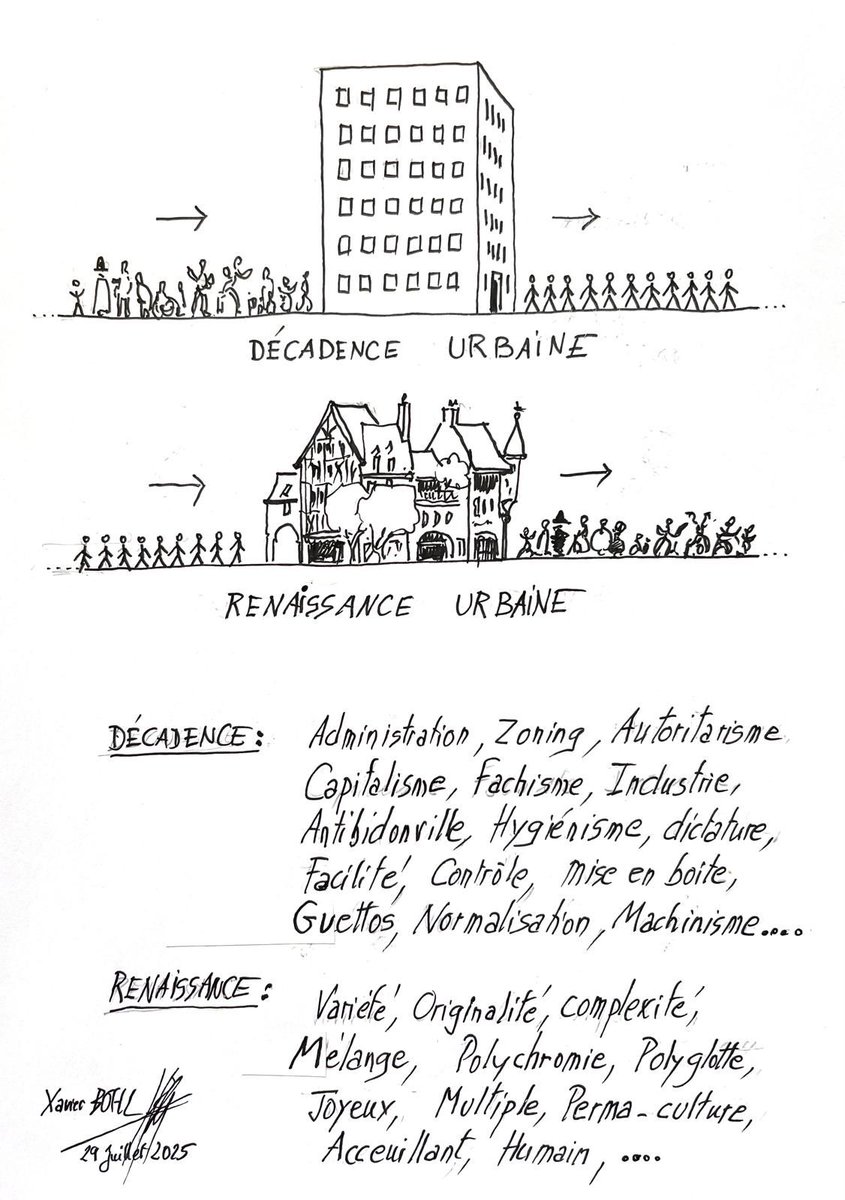 DÉCADENCE URBAiNE
RENAiSSANCE URBAiNE
DÉCADENCE : Administration, Zoning, Autoritarisme
Capitalisme, Fachisme, Industrie,
Antibidonville, Hygiénisme, dictature,
Facilité, Contrôle, mise en boite,
Guettos, Normalisation, Machinisme....
RENAiSSANCE : Variété, Originalité, complexité,
Mélange, Polychromie, Polyglotte,
Joyeux, Multiple, Perma-culture,
Acceuillant, Humain, ....
Xavier BOHL
29 Juillet 2025